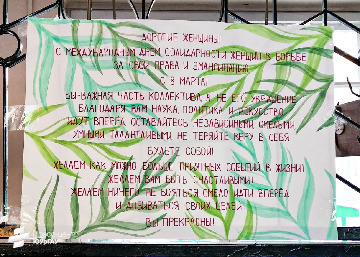 ДОРОГИЕ ЖЕНЩИНЫ
С МЕЖДУНАРОДНЫМ ДНЁМ СОЛИДАРНОСТИ ЖЕНЩИН В БОРЬБЕ
ЗА СВОИ ПРАВА И ЭМАНСИПАЦИЮ
С 8 МАРТА!
ВЫ-ВАЖНАЯ ЧАСТЬ КОЛЛЕКТИВА, А НЕ ЕГО УКРАШЕНИЕ
БЛАГОДАРЯ ВАМ НАУКА, ПОЛИТИКА И ИСКУССТВО
ИДУТ ВПЕРЁД ОСТАВАЙТЕСЬ НЕЗАВИСИМЫМИ, СМЕЛЫМИ
УМНЫМИ ТАЛАНТЛИВЫМИ НЕ ТЕРЯЙТЕ ВЕРУ В СЕБЯ
БУДЬТЕ СОБОЙ!
ЖЕЛАЕМ КАК МОЖНО БОЛЬШЕ ПРИЯТНЫХ СОБЫТИЙ В ЖИЗНИ
ЖЕЛАЕМ ВАМ БЫТЬ СЧАСТЛИВЫМИ
ЖЕЛАЕМ НИЧЕГО НЕ БОЯТЬСЯ СМЕЛО ИДТИ ВПЕРЁД
И ДОБИВАТЬСЯ СВОИХ ЦЕЛЕЙ
ВЫ ПРЕКРАСНЫ!